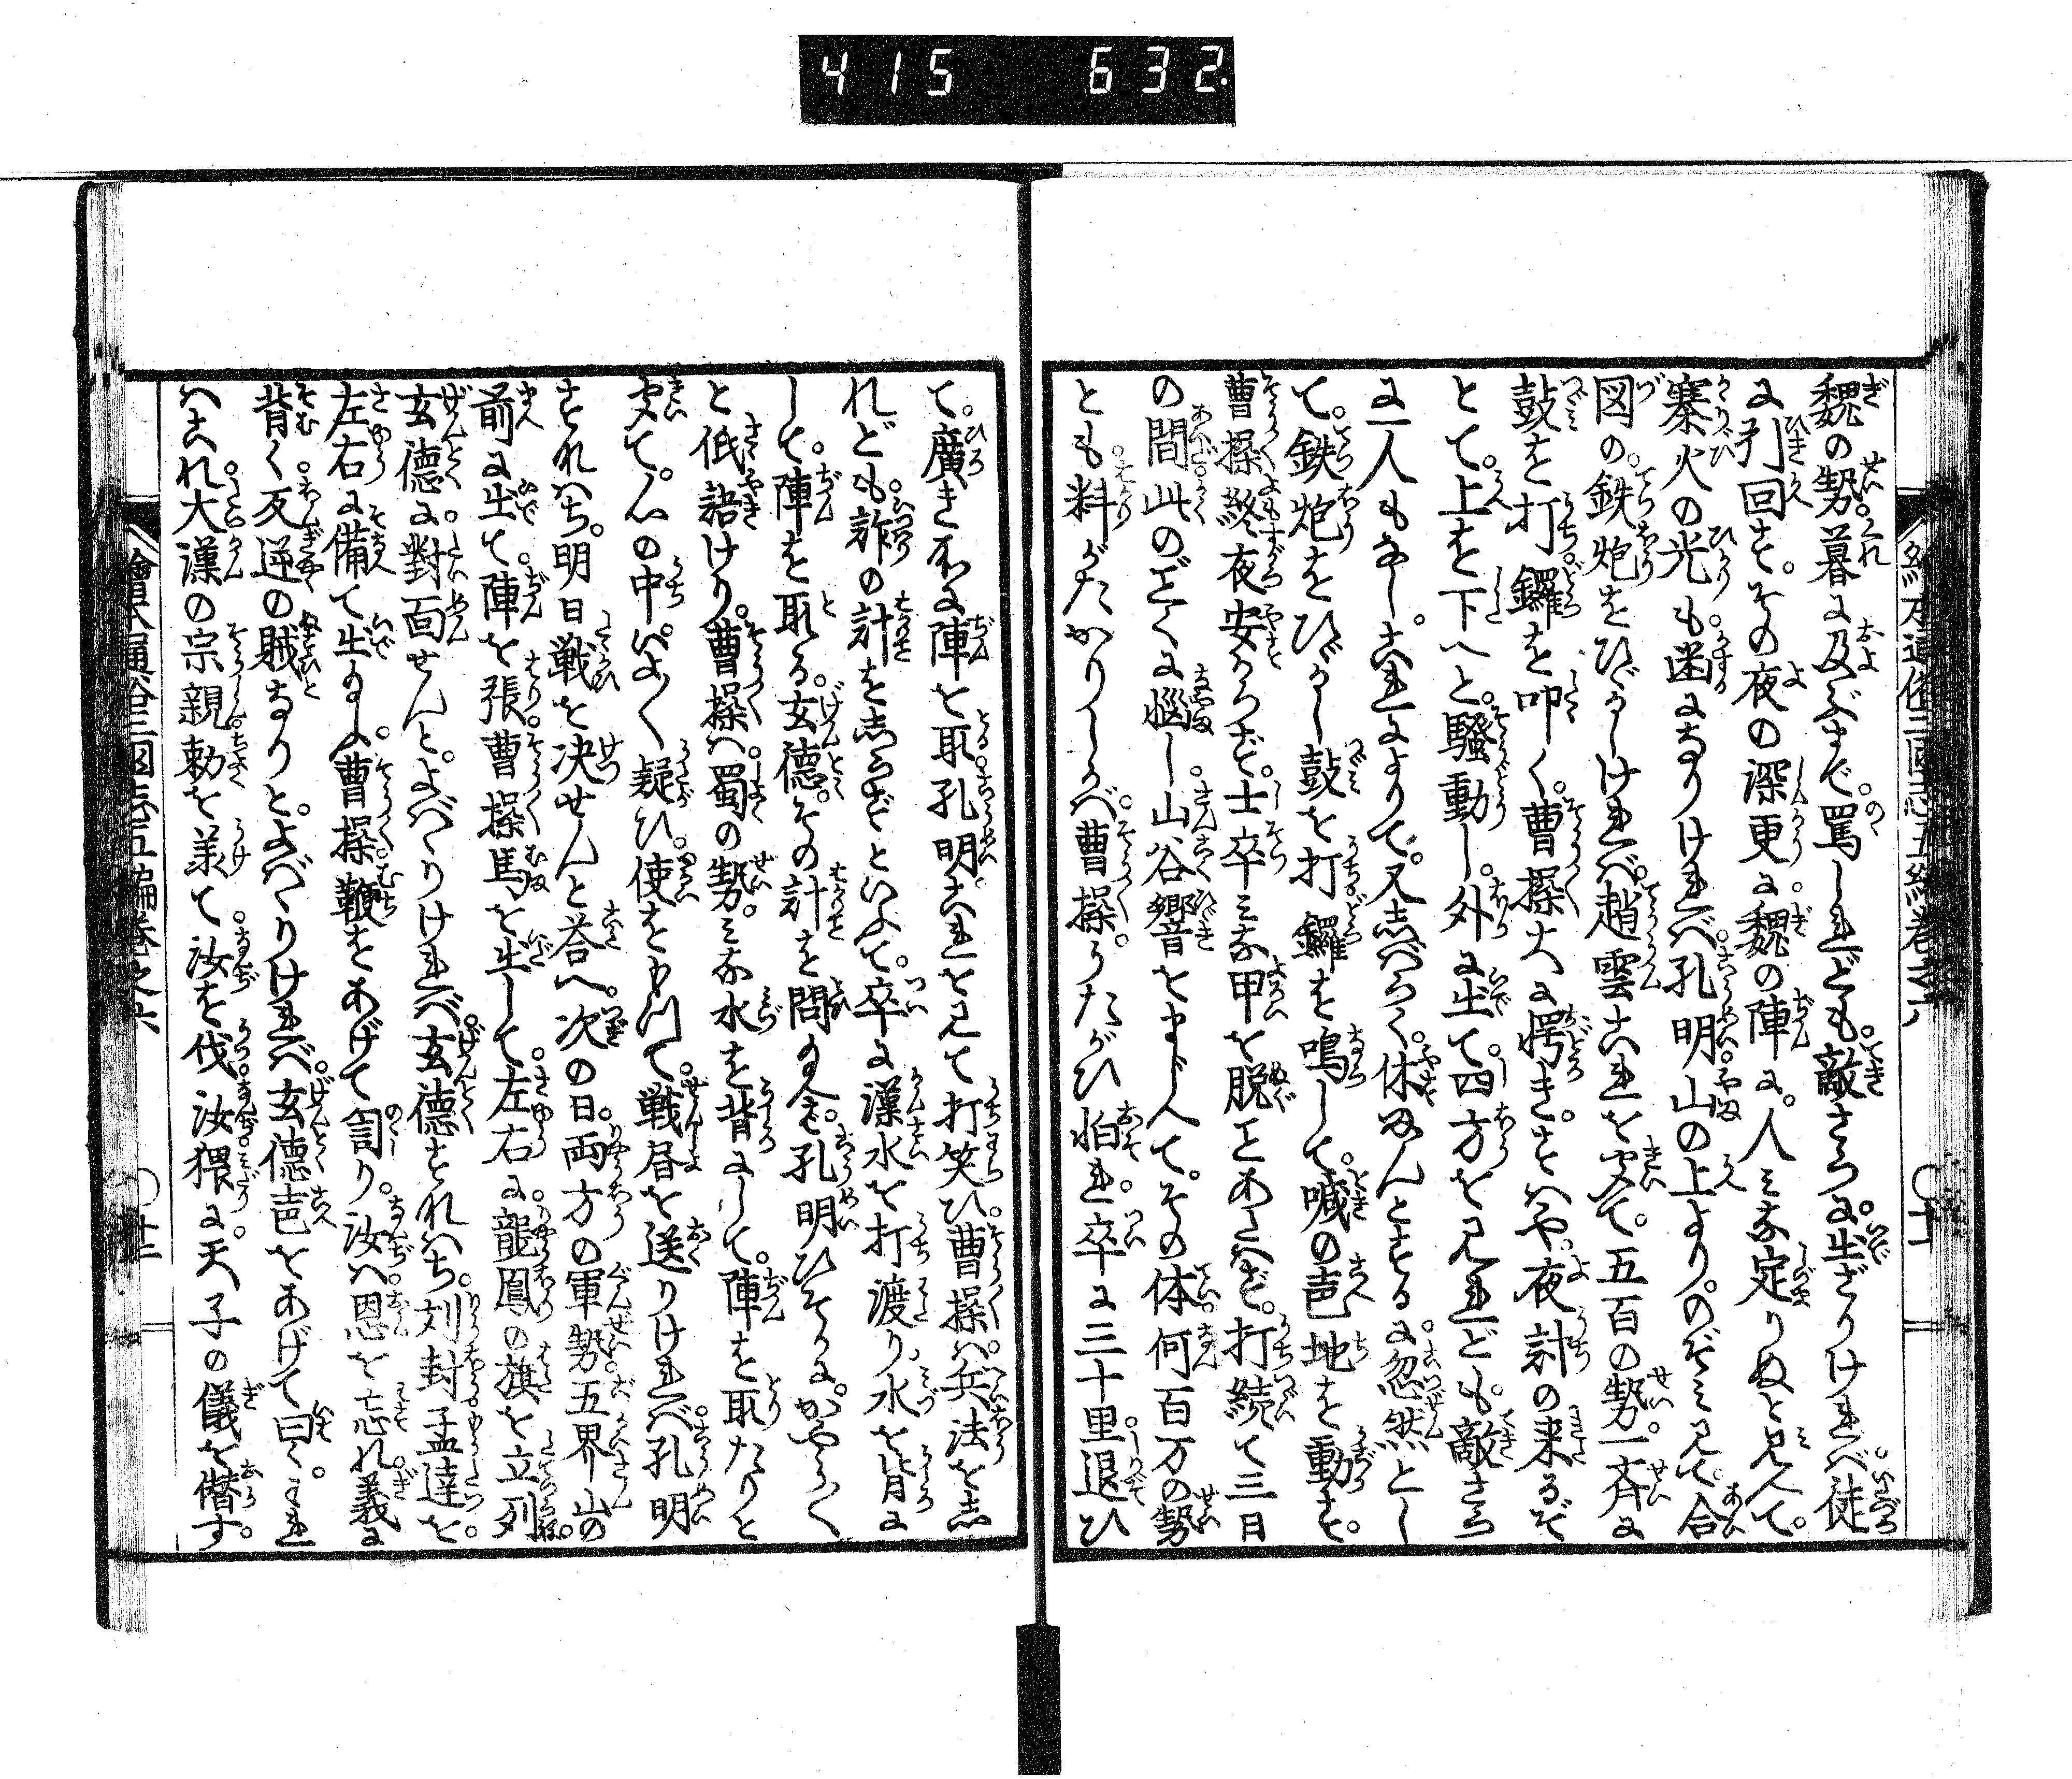 415 632.
繪本通俗三國志五編巻之六 ○十一
魏の勢暮に及ぶまで罵しれども敵さらに出ざりければ徒
に引回す。その夜の深更に魏の陣に。人みな定りぬと見へて。
寨火の光も幽になりければ孔明山の上より。のぞみ見て合
図の鉄炮をひゞかしければ趙雲これを聞て。五百の勢一斉に
鼓を打鑼を叩く。曹操大に愕き。すはや夜討の来るぞ
とて。上を下へと。騒動し。外に出て四方を見れども敵さら
に一人もなし。これによりて。又しばらく休まんとするに忽然とし
て。鉄炮をひゞかし鼓を打鑼を鳴して。喊の声地を動す。
曹操終夜安からず。士卒みな甲を脱ことあたはず。打続て三日
の間此のごとくに悩し。山谷響をまじへて。その体何百万の勢
とも料がたかりしかば曹操。うたがひ怕れ。卒に三十里退ひ
て。廣き所に陣を取孔明。これを見て打笑ひ。曹操は。兵法を志
れども詐の計をしらずといふて。卒に漢水を打渡り。水を背に
して。陣を取る。玄徳。その計を問給へば。孔明ひそかに。かやうく
と低語けり。曹操は。蜀の勢。みな水を背にして。陣を取たりと
聞て。心の中。いよく疑ひ。使をゆて。戦書を送りければ孔明
すなはち。明日戦を決せんと答へ。次の日。両方の軍勢。五界山の
前に出て陣を張。曹操馬を出して。左右に。龍鳳の旗を立列。
玄徳に對面せんと。よばゝりければ玄徳すなはち。刘封孟達を
左右に備て出給ふ。曹操鞭をあげて罸り。汝は恩を忘れ義に
背く反逆の賊なりと。よばゝりければ。玄徳声をあげて曰く。われ
はこれ大漢の宗親。勅を羕て汝を伐。汝猥に。天子の儀を僭す。
繪本通俗三國志五編巻之六 ○廿二